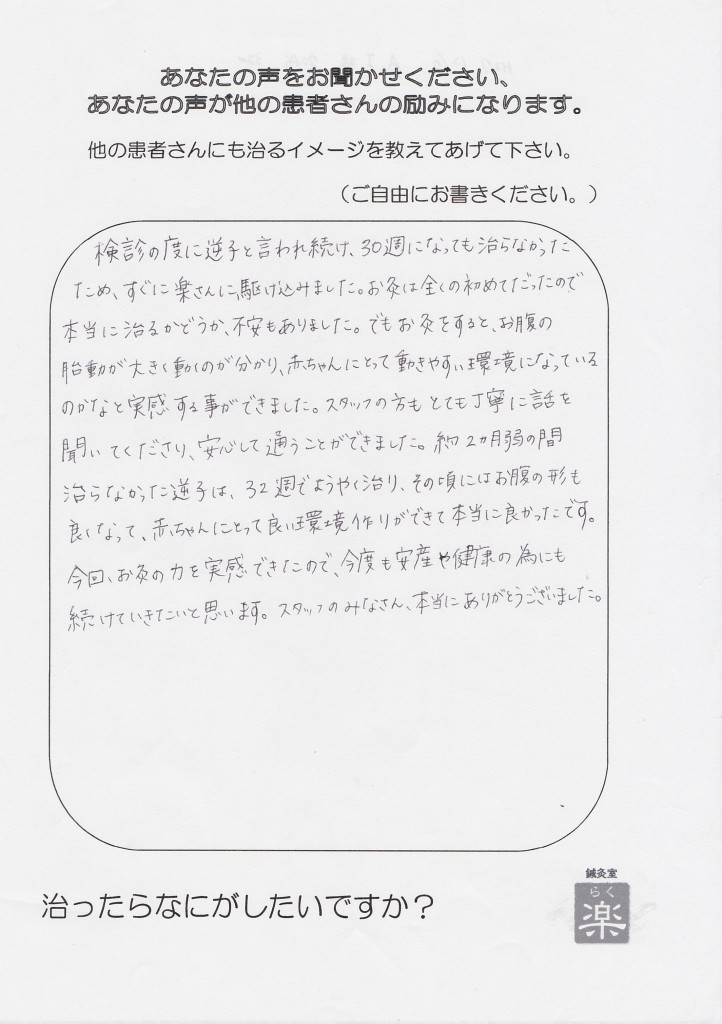 あなたの声をお聞かせください、
あなたの声が他の患者さんの励みになります。
他の患者さんにも治るイメージを教えてあげて下さい。
（ご自由にお書きください。）
検診の度に逆子と言われ続け、30週になっても治らなかった
ため、すぐに楽さんに駆け込みました。お灸は全くの初めてだったので
本当に治るかどうか、不安もありました。でもお灸をすると、お腹の
胎動が大きく動くのが分かり、赤ちゃんにとって動きやすい環境になっている
のかなと実感する事ができました。スタッフの方もとても丁寧に話を
聞いてくださり、安心して通うことができました。約2ヵ月弱の間
治らなかった逆子は、32週でようやく治り、その頃にはお腹の形も
良くなって、赤ちゃんにとって良い環境作りができて本当に良かったです。
今回、お灸の力を実感できたので、今度も安産や健康の為にも
続けていきたいと思います。スタッフのみなさん、本当にありがとうございました。
治ったらなにがしたいですか？
鍼灸室
らく
楽